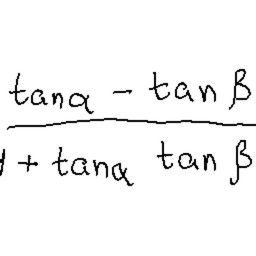 tanα - tan β
1 + tanα tan β